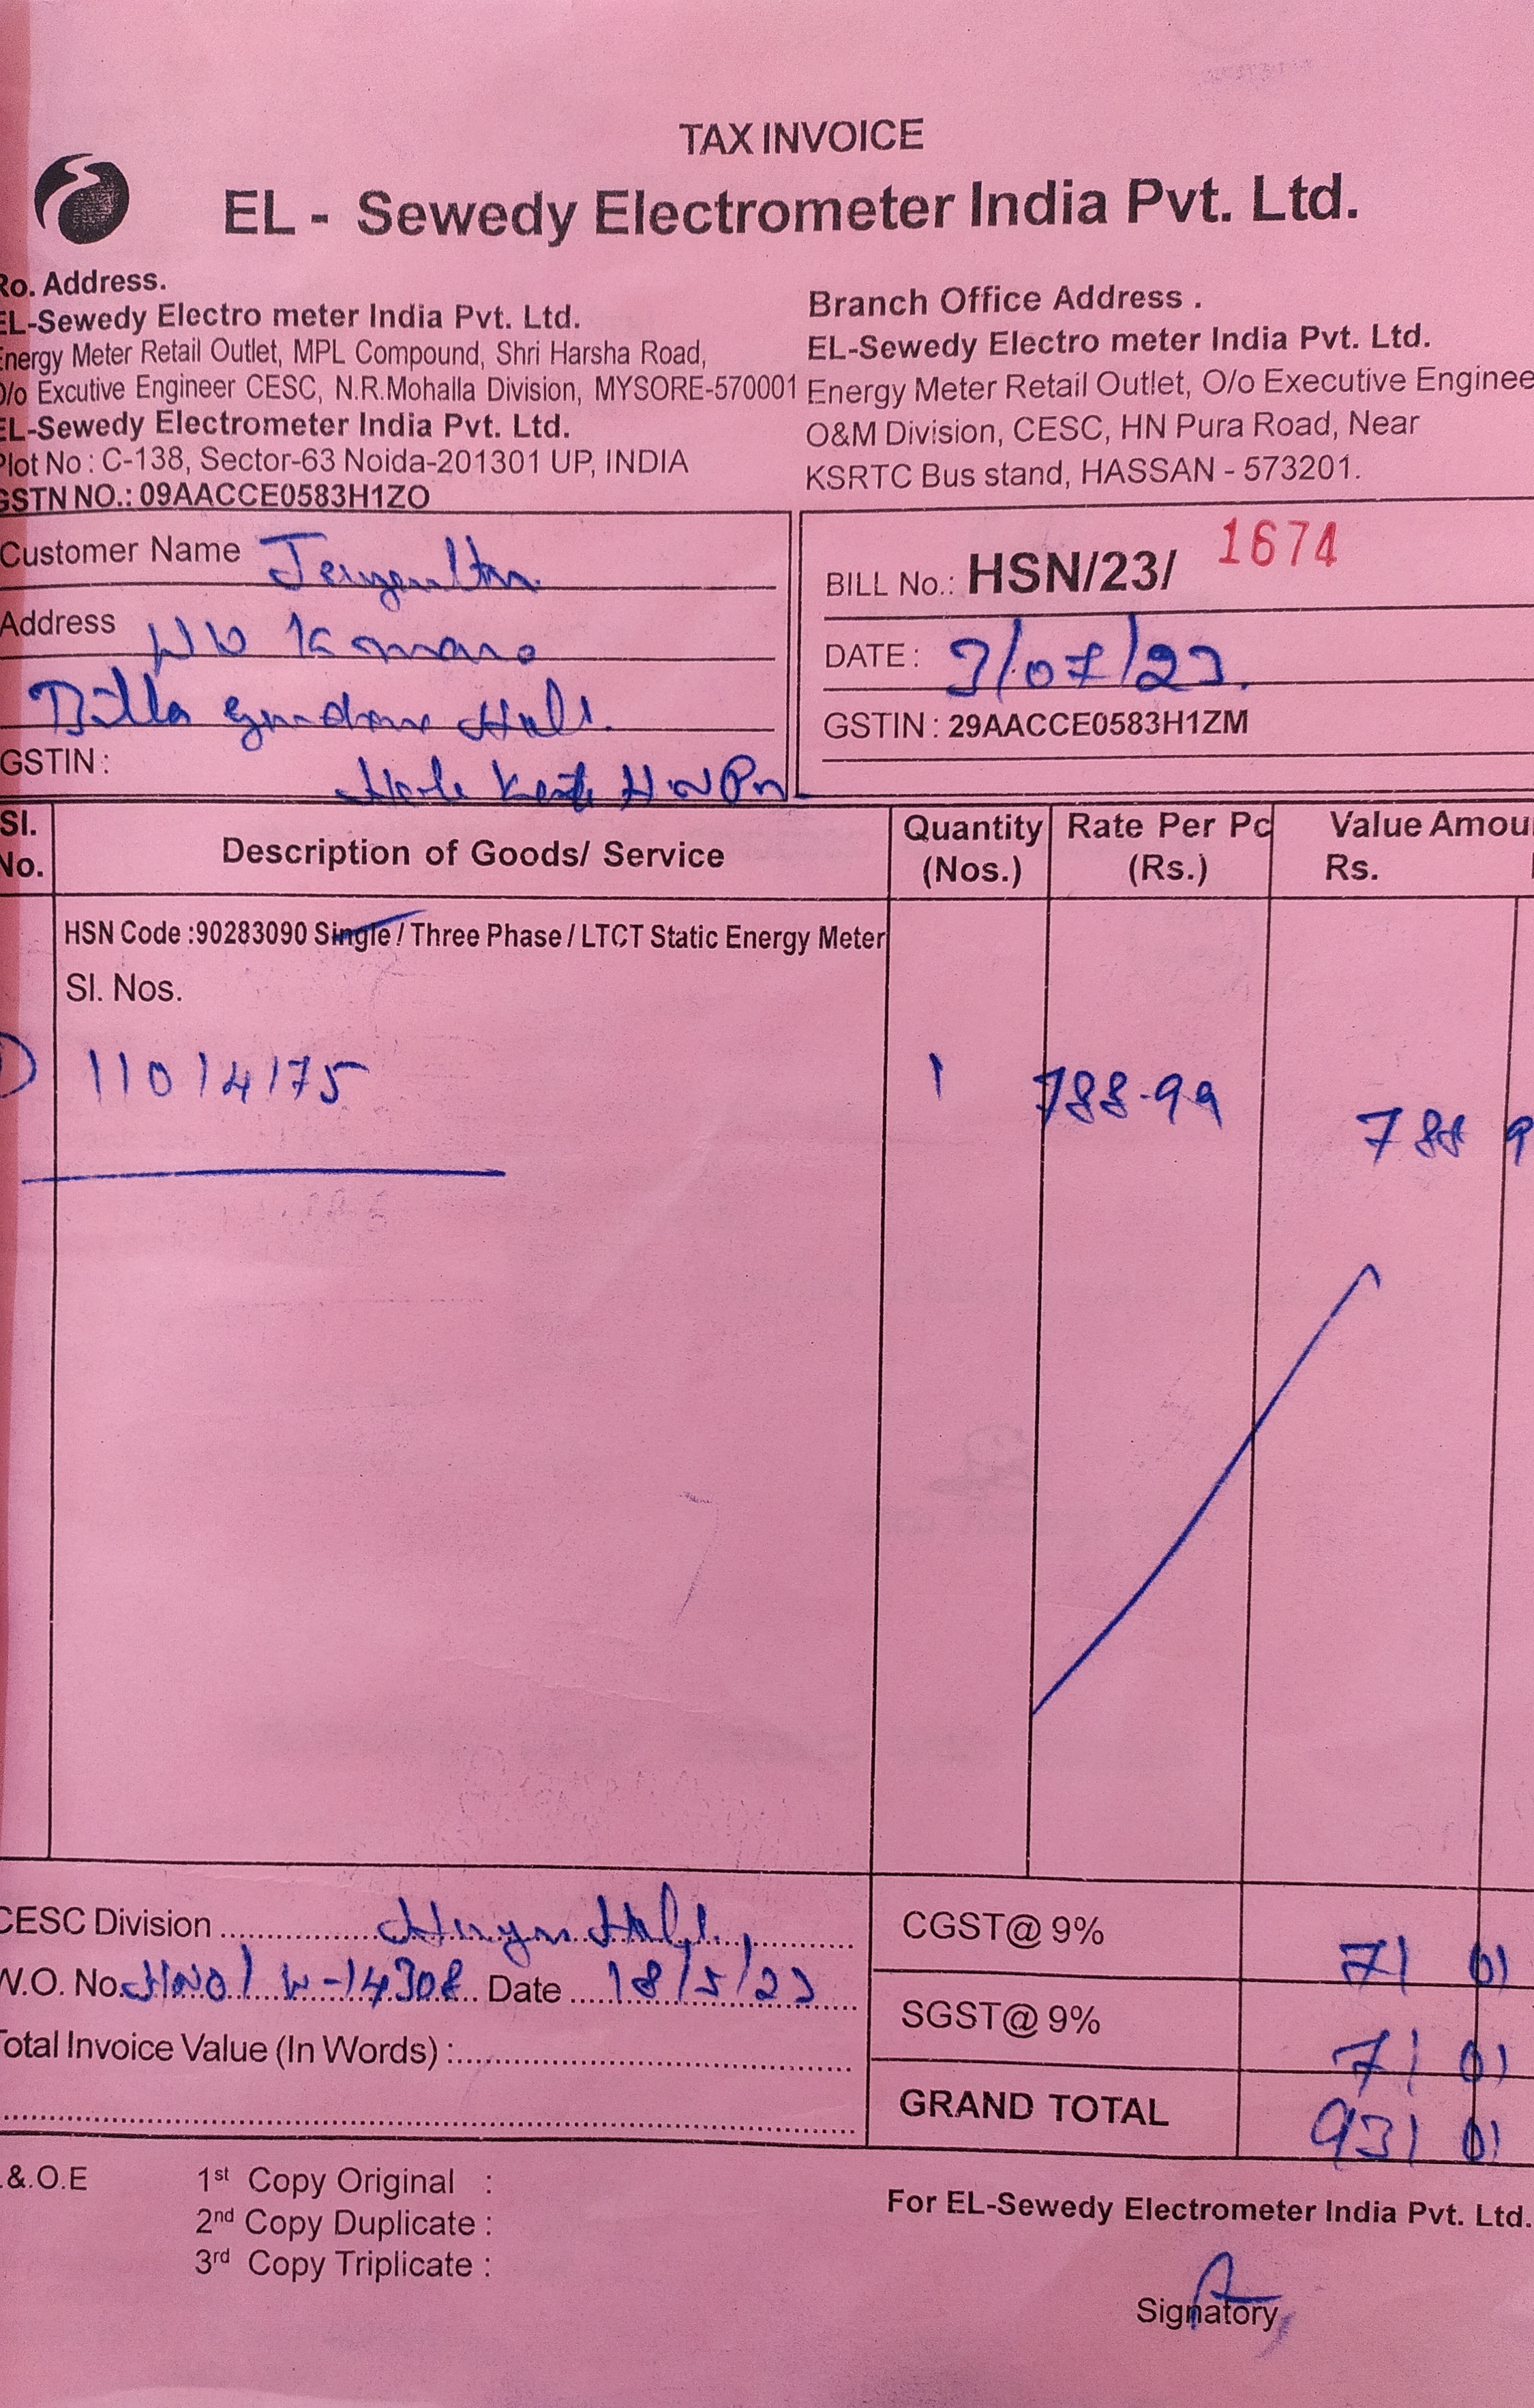 TAX INVOICE
EL - Sewedy Electrometer India Pvt. Ltd.
Ro. Address.
EL-Sewedy Electro meter India Pvt. Ltd.
Energy Meter Retail Outlet, MPL Compound, Shri Harsha Road,
O/o Excutive Engineer CESC, N.R.Mohalla Division, MYSORE-570001
EL-Sewedy Electrometer India Pvt. Ltd.
Plot No : C-138, Sector-63 Noida-201301 UP, INDIA
GSTN NO.: 09AACCE0583H1ZO
Branch Office Address .
EL-Sewedy Electro meter India Pvt. Ltd.
Energy Meter Retail Outlet, O/o Executive Enginee
O&M Division, CESC, HN Pura Road, Near
KSRTC Bus stand, HASSAN - 573201.
Customer Name
Address
GSTIN :
BILL No.: HSN/23/ 1674
DATE : 3/07/23
GSTIN : 29AACCE0583H1ZM
Sl. No. Description of Goods/ Service Quantity (Nos.) Rate Per Pc (Rs.) Value Amou Rs.
HSN Code :90283090 Single / Three Phase / LTCT Static Energy Meter
Sl. Nos.
11014175 1 788-99 788 9
CESC Division
W.O. No. Date 18/5/23
Total Invoice Value (In Words) :
CGST@ 9% 71 01
SGST@ 9% 71 01
GRAND TOTAL 931 01
.&.O.E
1st Copy Original :
2nd Copy Duplicate :
3rd Copy Triplicate :
For EL-Sewedy Electrometer India Pvt. Ltd.
Signatory